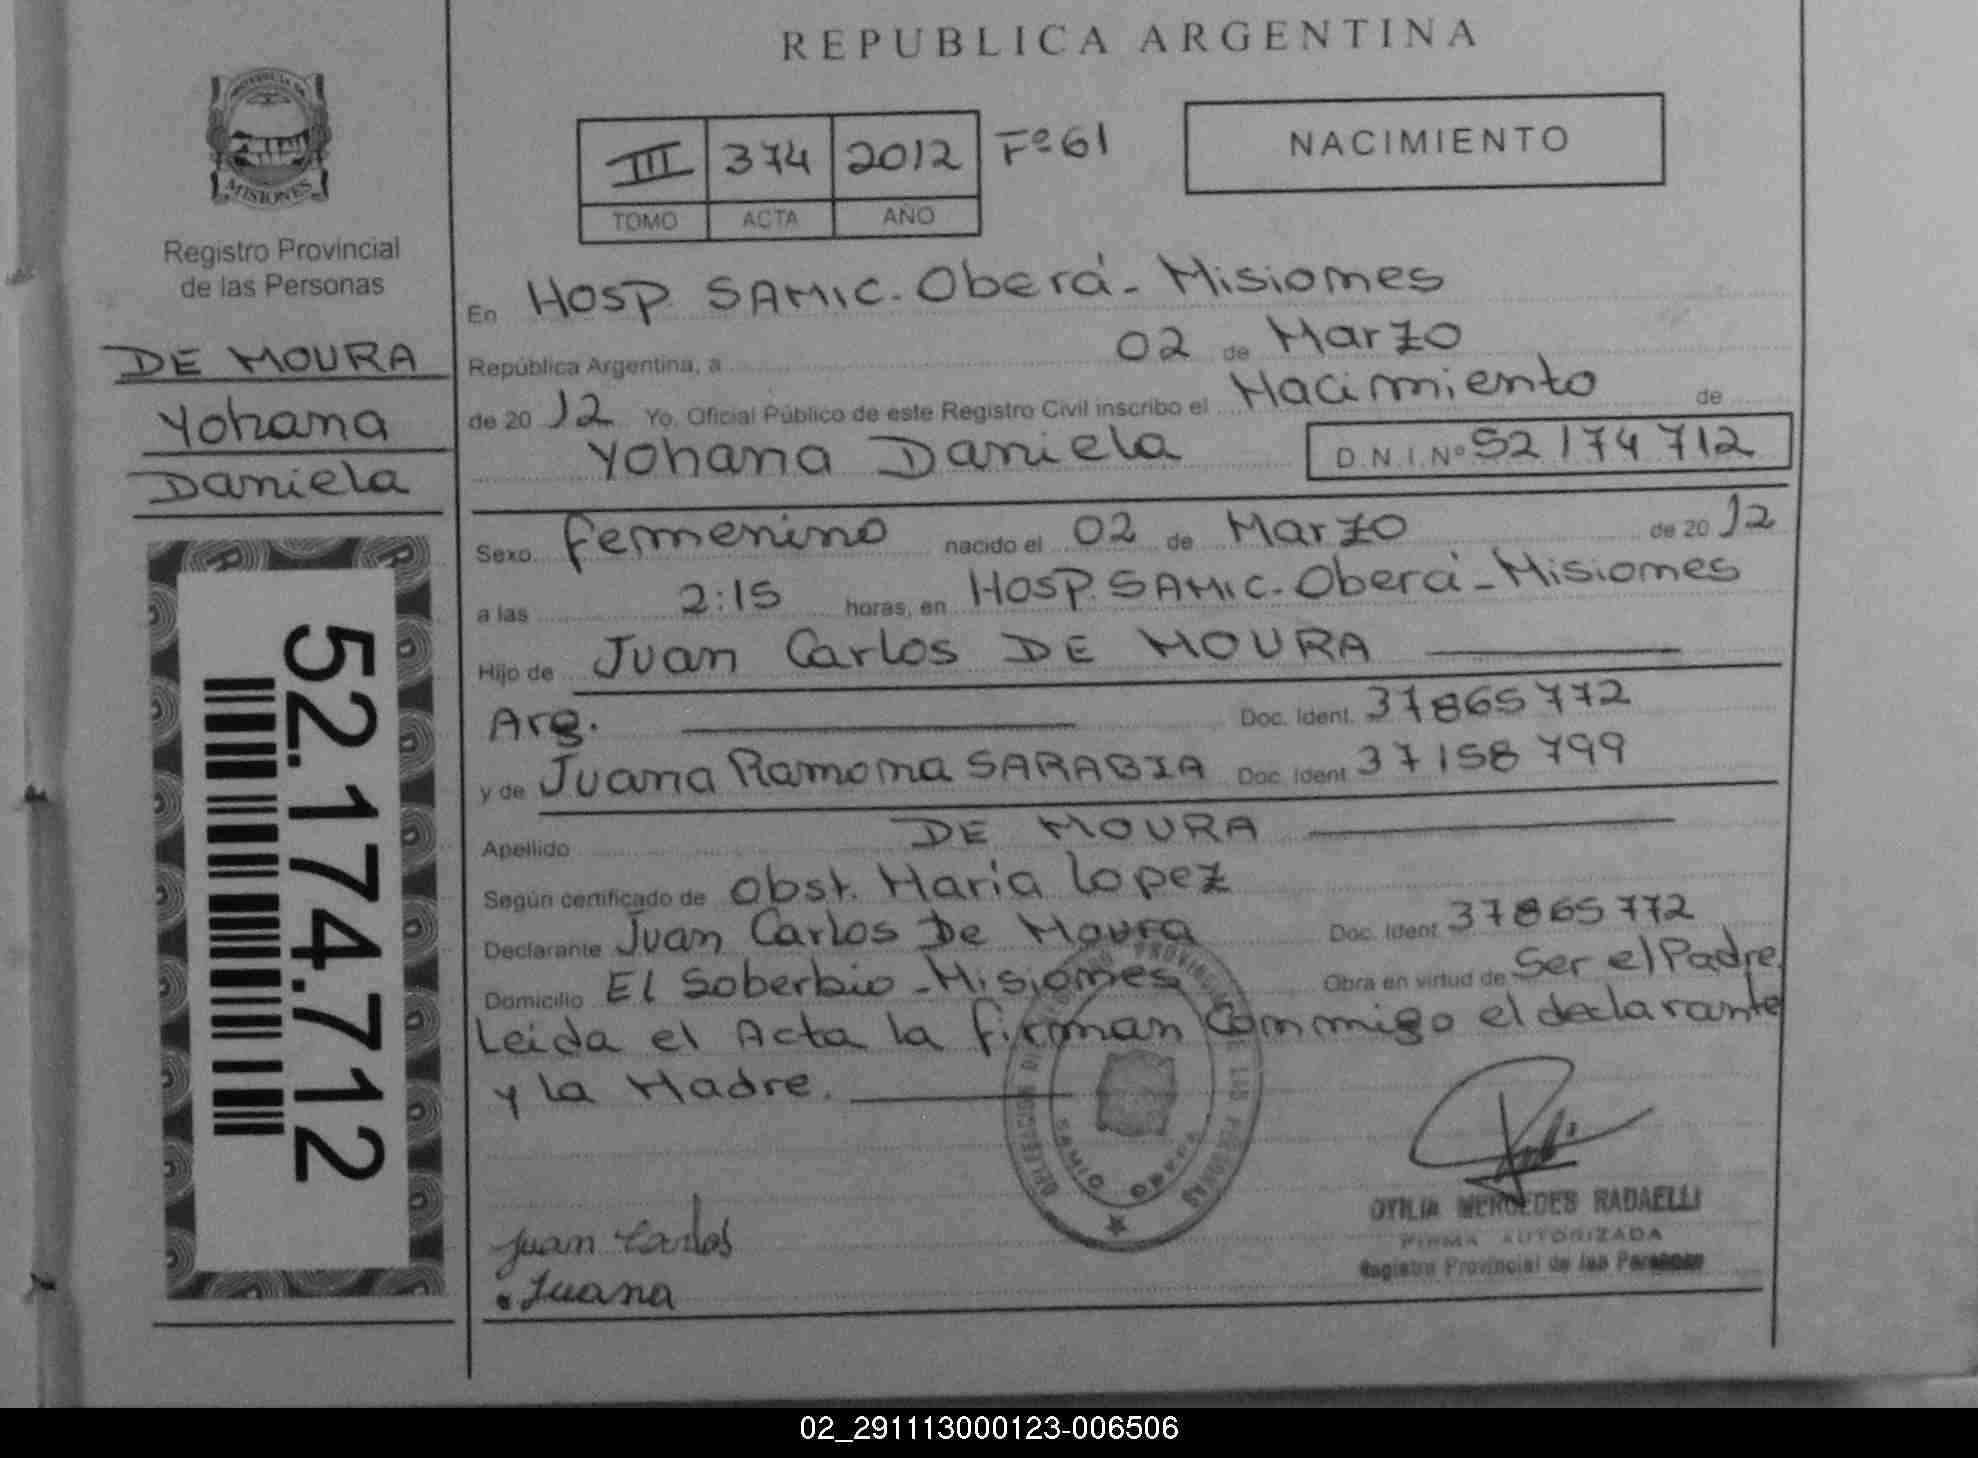 REPUBLICA ARGENTINA
PROVINCIA DE
MISIONES
Registro Provincial
de las Personas
DE MOURA
Yohana
Daniela
52.174.712
III 374 2012 Fº61
TOMO ACTA AÑO
NACIMIENTO
En Hosp. SAMIC. Oberá - Misiones
República Argentina, a 02 de Marzo
de 2012 Yo, Oficial Público de este Registro Civil inscribo el Nacimiento de
Yohana Daniela D.N.I.Nº 52 174 712
Sexo Femenino nacido el 02 de Marzo de 2012
a las 2:15 horas, en Hosp. SAMIC. Oberá - Misiones
Hijo de Juan Carlos DE MOURA
Arg. Doc. Ident. 37865772
y de Juana Ramona SARABIA Doc. Ident. 37158799
Apellido DE MOURA
Según certificado de Obst. Maria Lopez
Declarante Juan Carlos De Moura Doc. Ident. 37865772
Domicilio El Soberbio - Misiones Obra en virtud de Ser el Padre.
Leida el Acta la firman Conmigo el declarante
y la Madre.
DELEGACION REGISTRO PROVINCIAL DE LAS PERSONAS
SAMIC OBERA
Juan Carlos
Juana
OTILIA MERCEDES RADAELLI
FIRMA AUTORIZADA
Registro Provincial de las Personas
02_291113000123-006506